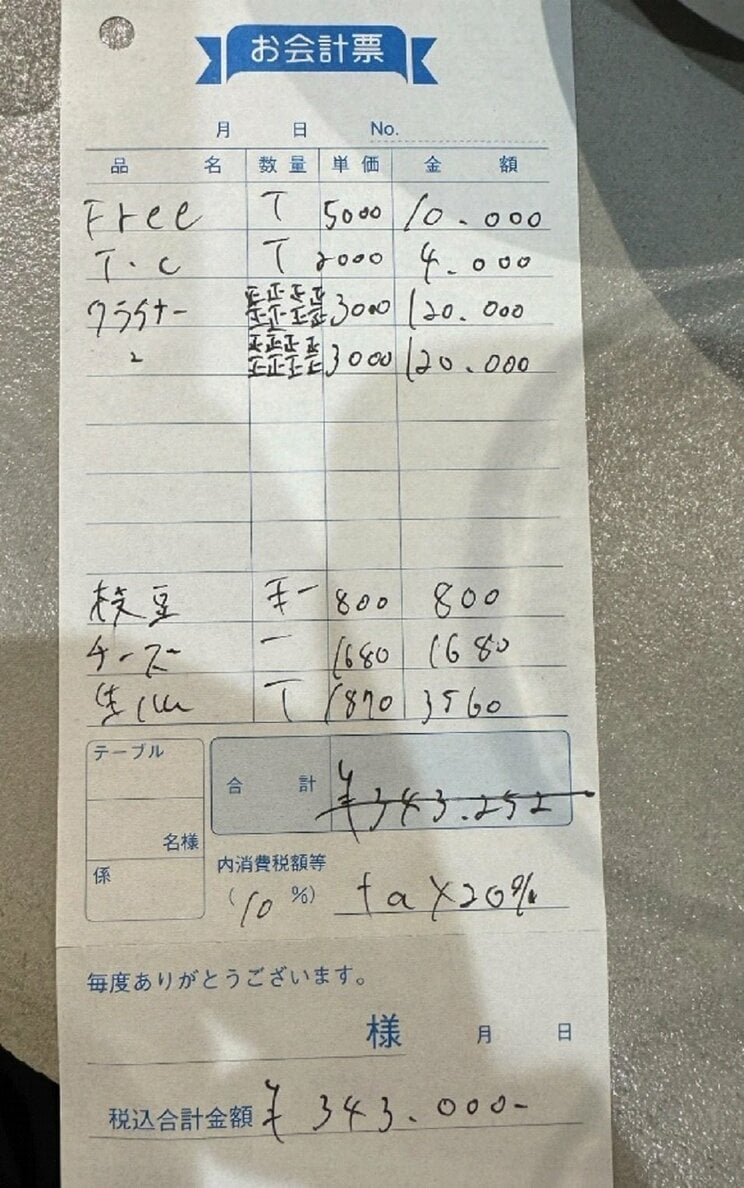 お会計票
月 日 No.
品名 数量 単価 金額
Free T 5000 10.000
T.C T 2000 4.000
クライナー 正正正正正正正正 3000 120.000
〃 正正正正正正正正 3000 120.000
枝豆 一 800 800
チーズ 一 1680 1680
T 1870 3560
テーブル
合計 ¥343.252
名様
係
内消費税額等
(10%) tax20%
毎度ありがとうございます。
様 月 日
税込合計金額 ¥343.000-